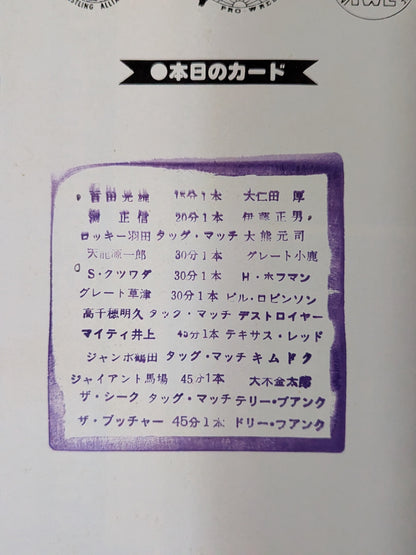 STLING ALLIA
PRO WRES
AWE
●本日のカード
百田光雄 15分1本 大仁田 厚
淵 正信 20分1本 伊藤正男
ロッキー羽田 タッグ・マッチ 大熊元司
天龍源一郎 30分1本 グレート小鹿
S・クツワダ 30分1本 H・ホフマン
グレート草津 30分1本 ビル・ロビンソン
高千穂明久 タッグ・マッチ デストロイヤー
マイティ井上 45分1本 テキサス・レッド
ジャンボ鶴田 タッグ・マッチ キム ドク
ジャイアント馬場 45分1本 大木金太郎
ザ・シーク タッグ・マッチ テリー・フアンク
ザ・ブッチャー 45分1本 ドリー・フアンク